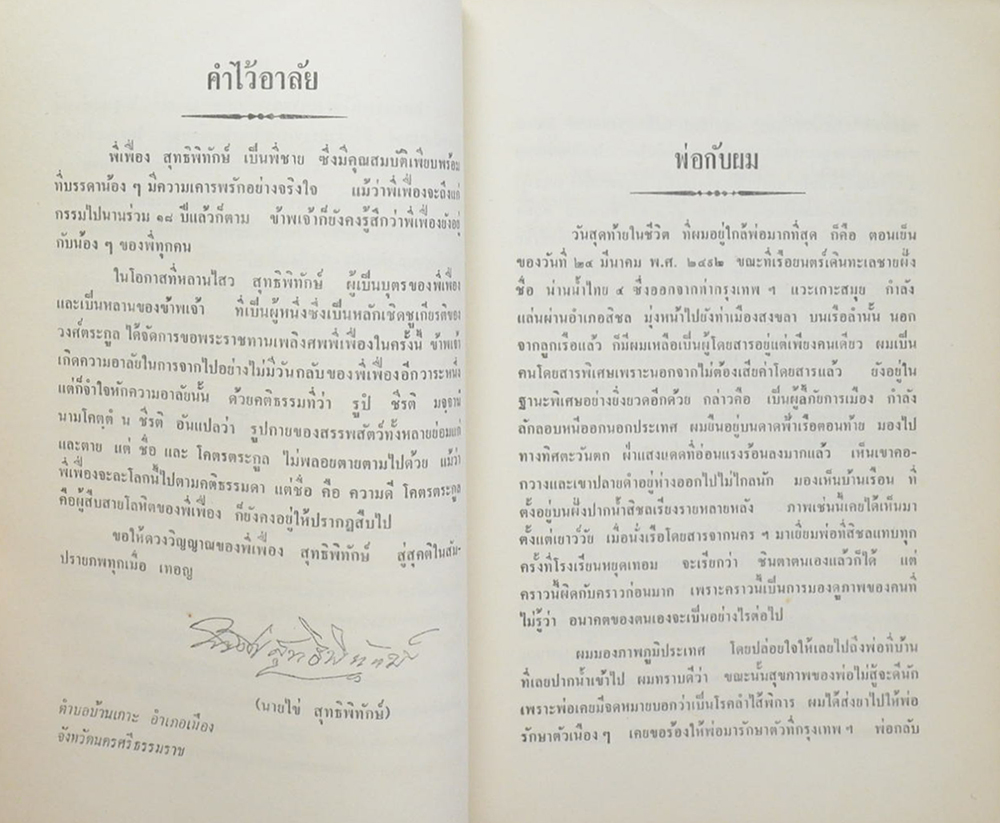 คำไว้อาลัย
พี่เฟื่อง สุทธิพิทักษ์ เป็นพี่ชาย ซึ่งมีคุณสมบัติเพียบพร้อม
ที่บรรดาน้อง ๆ มีความเคารพรักอย่างจริงใจ แม้ว่าพี่เฟื่องจะถึงแก่
กรรมไปนานร่วม ๑๘ ปีแล้วก็ตาม ข้าพเจ้าก็ยังคงรู้สึกว่าพี่เฟื่องยังอยู่
กับน้อง ๆ ของพี่ทุกคน
ในโอกาสที่หลานไสว สุทธิพิทักษ์ ผู้เป็นบุตรของพี่เฟื่อง
และเป็นหลานของข้าพเจ้า ที่เป็นผู้หนึ่งซึ่งเป็นหลักเชิดชูเกียรติของ
วงศ์ตระกูล ได้จัดการขอพระราชทานเพลิงศพพี่เฟื่องในครั้งนี้ ข้าพเจ้า
เกิดความอาลัยในการจากไปอย่างไม่มีวันกลับของพี่เฟื่องอีกวาระหนึ่ง
แต่ก็จำใจหักความอาลัยนั้น ด้วยคติธรรมที่ว่า รูปํ ชีรติ มจฺจานํ
นามโคตฺตํ น ชีรติ อันแปลว่า รูปกายของสรรพสัตว์ทั้งหลายย่อมแก่
และตาย แต่ ชื่อ และ โคตรตระกูล ไม่พลอยตายตามไปด้วย แม้ว่า
พี่เฟื่องจะละโลกนี้ไปตามคติธรรมดา แต่ชื่อ คือ ความดี โคตรตระกูล
คือผู้สืบสายโลหิตของพี่เฟื่อง ก็ยังคงอยู่ให้ปรากฏสืบไป
ขอให้ดวงวิญญาณของพี่เฟื่อง สุทธิพิทักษ์ สู่สุคติในสัม-
ปรายภพทุกเมื่อ เทอญ
(นายไข่ สุทธิพิทักษ์)
ตำบลบ้านเกาะ อำเภอเมือง
จังหวัดนครศรีธรรมราช
พ่อกับผม
วันสุดท้ายในชีวิต ที่ผมอยู่ใกล้พ่อมากที่สุด ก็คือ ตอนเย็น
ของวันที่ ๒๔ มีนาคม พ.ศ. ๒๔๙๒ ขณะที่เรือยนตร์เดินทะเลชายฝั่ง
ชื่อ น่านน้ำไทย ๔ ซึ่งออกจากท่ากรุงเทพ ฯ แวะเกาะสมุย กำลัง
แล่นผ่านอำเภอสิชล มุ่งหน้าไปยังท่าเมืองสงขลา บนเรือลำนั้น นอก
จากลูกเรือแล้ว ก็มีผมเหลือเป็นผู้โดยสารอยู่แต่เพียงคนเดียว ผมเป็น
คนโดยสารพิเศษเพราะนอกจากไม่ต้องเสียค่าโดยสารแล้ว ยังอยู่ใน
ฐานะพิเศษอย่างยิ่งยวดอีกด้วย กล่าวคือ เป็นผู้ลี้ภัยการเมือง กำลัง
ลักลอบหนีออกนอกประเทศ ผมยืนอยู่บนดาดฟ้าเรือตอนท้าย มองไป
ทางทิศตะวันตก ฝ่าแสงแดดที่อ่อนแรงร้อนลงมากแล้ว เห็นเขาคอ-
กวางและเขาปลายดำอยู่ห่างออกไปไม่ไกลนัก มองเห็นบ้านเรือน ที่
ตั้งอยู่บนฝั่งปากน้ำสิชลเรียงรายหลายหลัง ภาพเช่นนี้เคยได้เห็นมา
ตั้งแต่เยาว์วัย เมื่อนั่งเรือโดยสารจากนคร ฯ มาเยี่ยมพ่อที่สิชลแทบทุก
ครั้งที่โรงเรียนหยุดเทอม จะเรียกว่า ชินตาตนเองแล้วก็ได้ แต่
คราวนี้ผิดกับคราวก่อนมาก เพราะคราวนี้เป็นการมองดูภาพของคนที่
ไม่รู้ว่า อนาคตของตนเองจะเป็นอย่างไรต่อไป
ผมมองภาพภูมิประเทศ โดยปล่อยใจให้เลยไปถึงพ่อที่บ้าน
ที่เลยปากน้ำเข้าไป ผมทราบดีว่า ขณะนั้นสุขภาพของพ่อไม่สู้จะดีนัก
เพราะพ่อเคยมีจดหมายบอกว่าเป็นโรคลำไส้พิการ ผมได้ส่งยาไปให้พ่อ
รักษาตัวเนือง ๆ เคยขอร้องให้พ่อมารักษาตัวที่กรุงเทพ ฯ พ่อกลับ